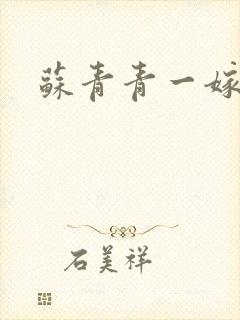 蘇青青一嫁
石美祥